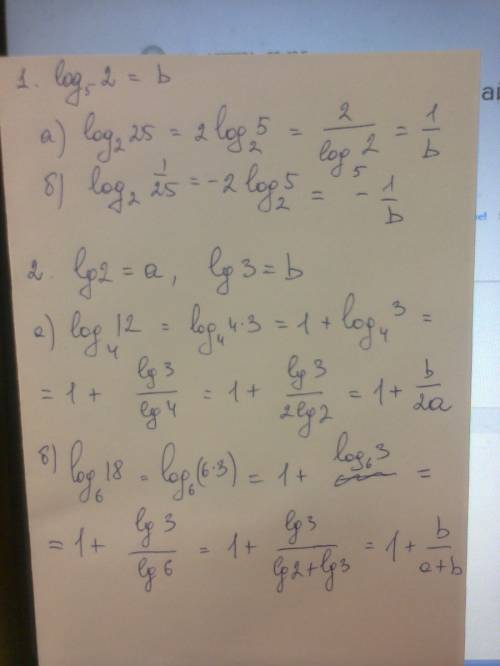 1. log₅ 2 = b
а) log₂ 25 = 2 log₂ 5 = 2/log₅ 2 = 1/b
б) log₂ 1/25 = -2 log₂ 5 = - 1/b
2. lg2 = a, lg3 = b
а) log₄ 12 = log₄ 4·3 = 1 + log₄ 3 =
= 1 + lg3/lg4 = 1 + lg3/2lg2 = 1 + b/2a
б) log₆ 18 = log₆ (6·3) = 1 + log₆ 3 =
= 1 + lg3/lg6 = 1 + lg3/lg2+lg3 = 1 + b/a+b
ai